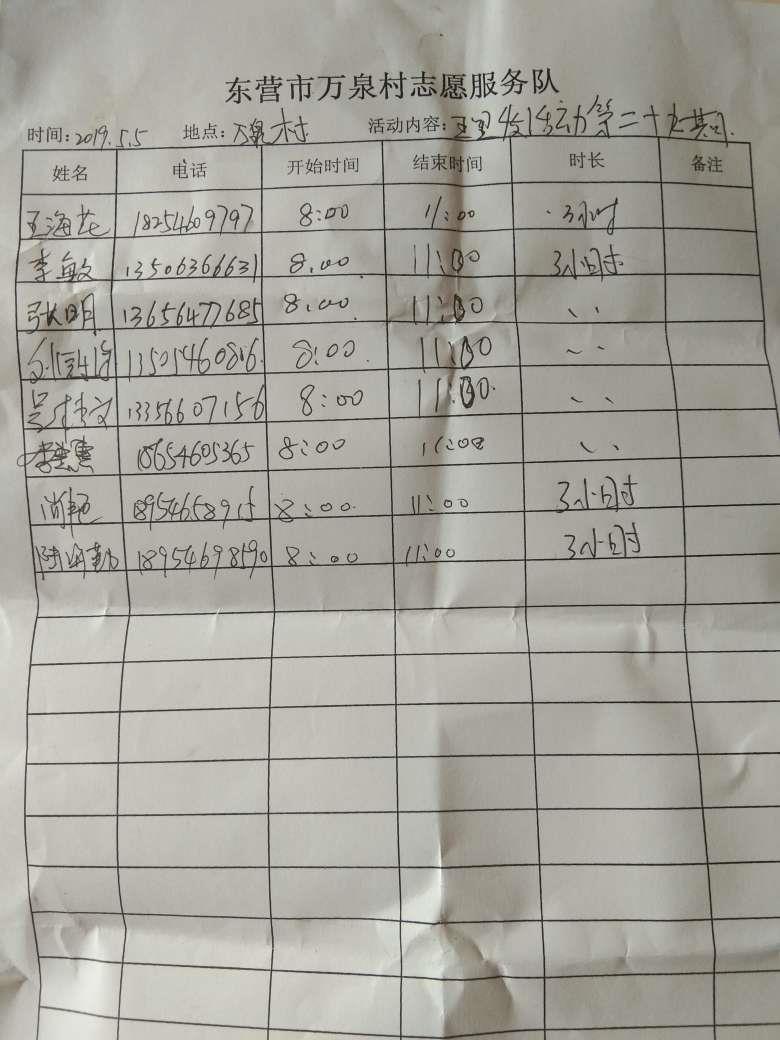 东营市万泉村志愿服务队
时间:2019.5.5 地点:万泉村 活动内容:义务理发活动第二十九期
姓名 电话 开始时间 结束时间 时长 备注
王海花 18254609797 8:00 11:00 3小时
李敏 13506366631 8:00 11:00 3小时
张明 13656477685 8:00 11:00 、、
8:00 11:00 、、
吴 13356607156 8:00 11:00 、、
李 18654605365 8:00 11:00 、、
尚艳 8:00 11:00 3小时
陆海勤 8:00 11:00 3小时